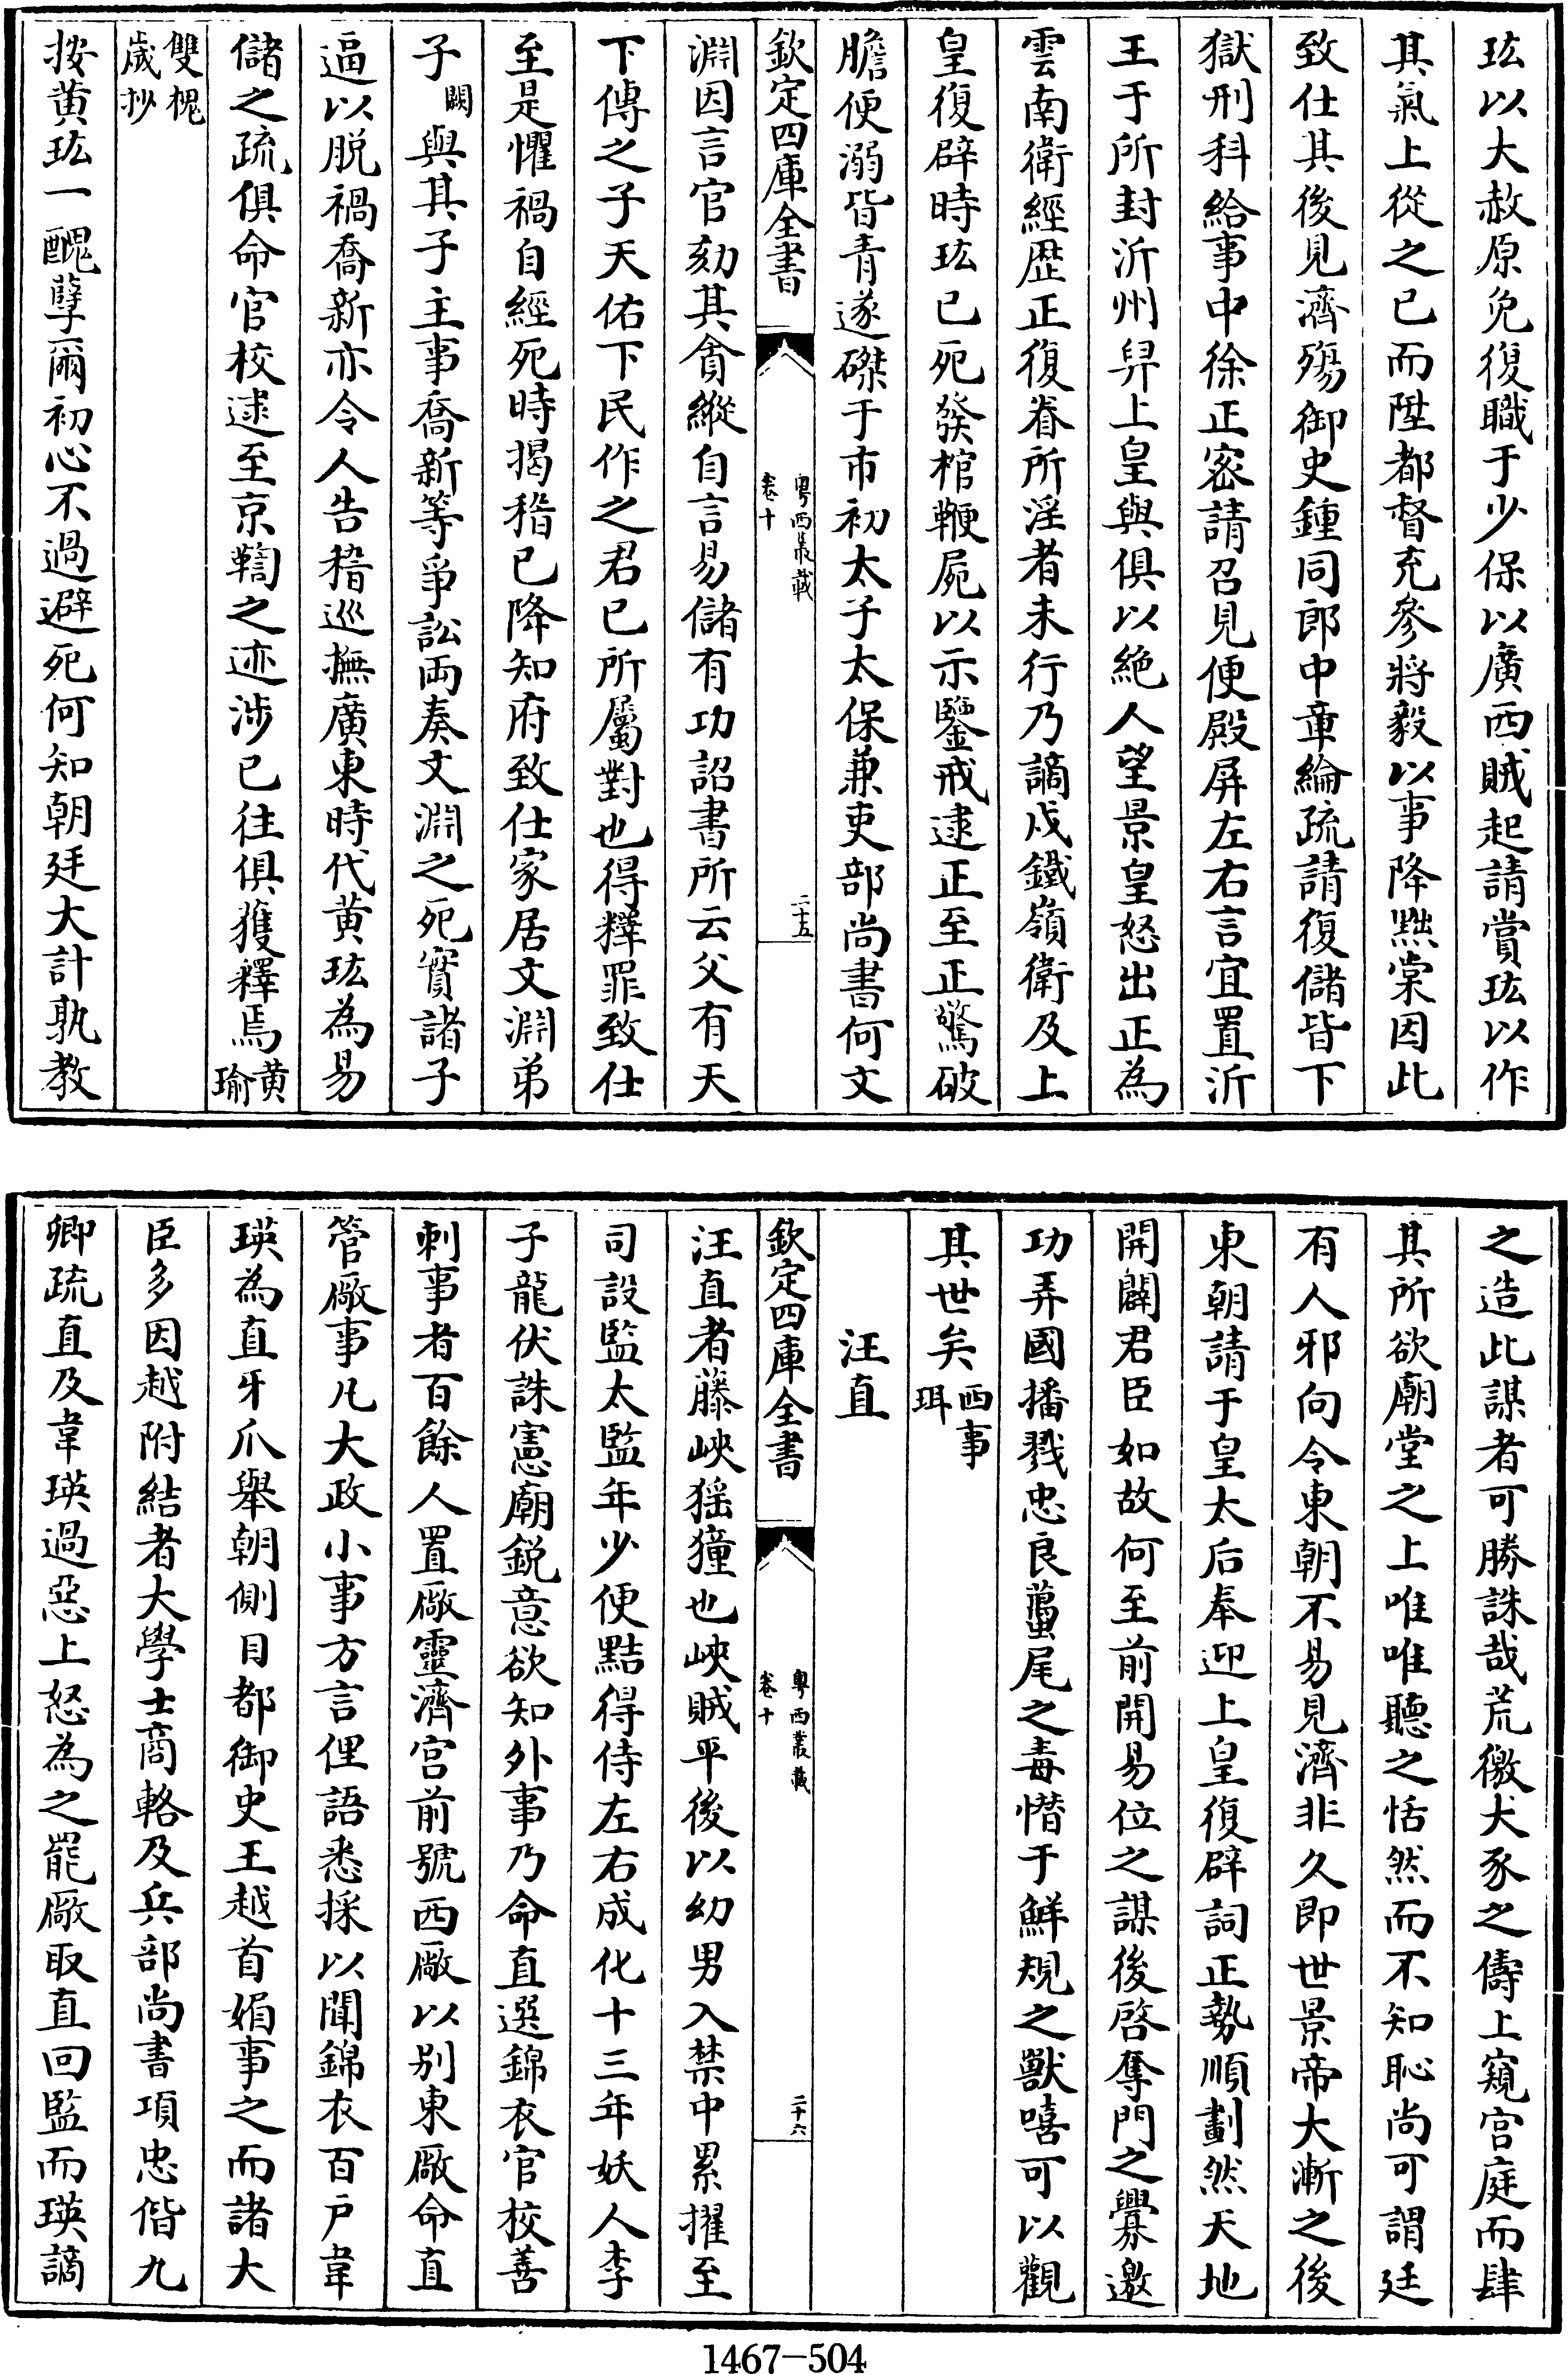 玹以大赦原免復職于少保以廣西賊起請賞玹以作
其氣上從之已而陞都督充參將毅以事降黜棠因此
致仕其後見濟殤御史鍾同郎中章綸疏請復儲皆下
獄刑科給事中徐正密請召見便殿屏左右言宜置沂
王于所封沂州舁上皇與俱以絶人望景皇怒出正為
雲南衛經歴正復眷所淫者未行乃謫戍鐵嶺衛及上
皇復辟時玹已死發棺鞭屍以示鑒戒逮正至正驚破
膽便溺皆青遂磔于市初太子太保兼吏部尚書何文
欽定四庫全書
粤西叢載
卷十
二十五
淵因言官劾其貪縱自言易儲有功詔書所云父有天
下傳之子天佑下民作之君已所屬對也得釋罪致仕
至是懼禍自經死時揭稽已降知府致仕家居文淵弟
子闕與其子主事喬新等爭訟両奏文淵之死實諸子
逼以脱禍喬新亦令人告稽巡撫廣東時代黄玹為易
儲之疏俱命官校逮至京鞫之迹涉已往俱獲釋焉黄瑜
雙槐歲抄
按黄玹一醜孽爾初心不過避死何知朝廷大計孰教
之造此謀者可勝誅哉荒徼犬豕之儔上窺宫庭而肆
其所欲廟堂之上唯唯聽之恬然而不知恥尚可謂廷
有人邪向令東朝不易見濟非久即世景帝大漸之後
東朝請于皇太后奉迎上皇復辟詞正勢順劃然天地
開闢君臣如故何至前開易位之謀後啓奪門之釁邀
功弄國播戮忠良蠆尾之毒憯于鮮規之獸嘻可以觀
其世矣西事珥
汪直
欽定四庫全書
粤西叢載
卷十
二十六
汪直者藤峽猺獞也峽賊平後以幼男入禁中累擢至
司設監太監年少便黠得侍左右成化十三年妖人李
子龍伏誅憲廟鋭意欲知外事乃命直選錦衣官校善
刺事者百餘人置厰靈濟宫前號西厰以别東厰命直
管厰事凡大政小事方言俚語悉採以聞錦衣百户韋
瑛為直牙爪舉朝側目都御史王越首媚事之而諸大
臣多因越附結者大學士商輅及兵部尚書項忠偕九
卿疏直及韋瑛過惡上怒為之罷厰取直回監而瑛謫
1467-504